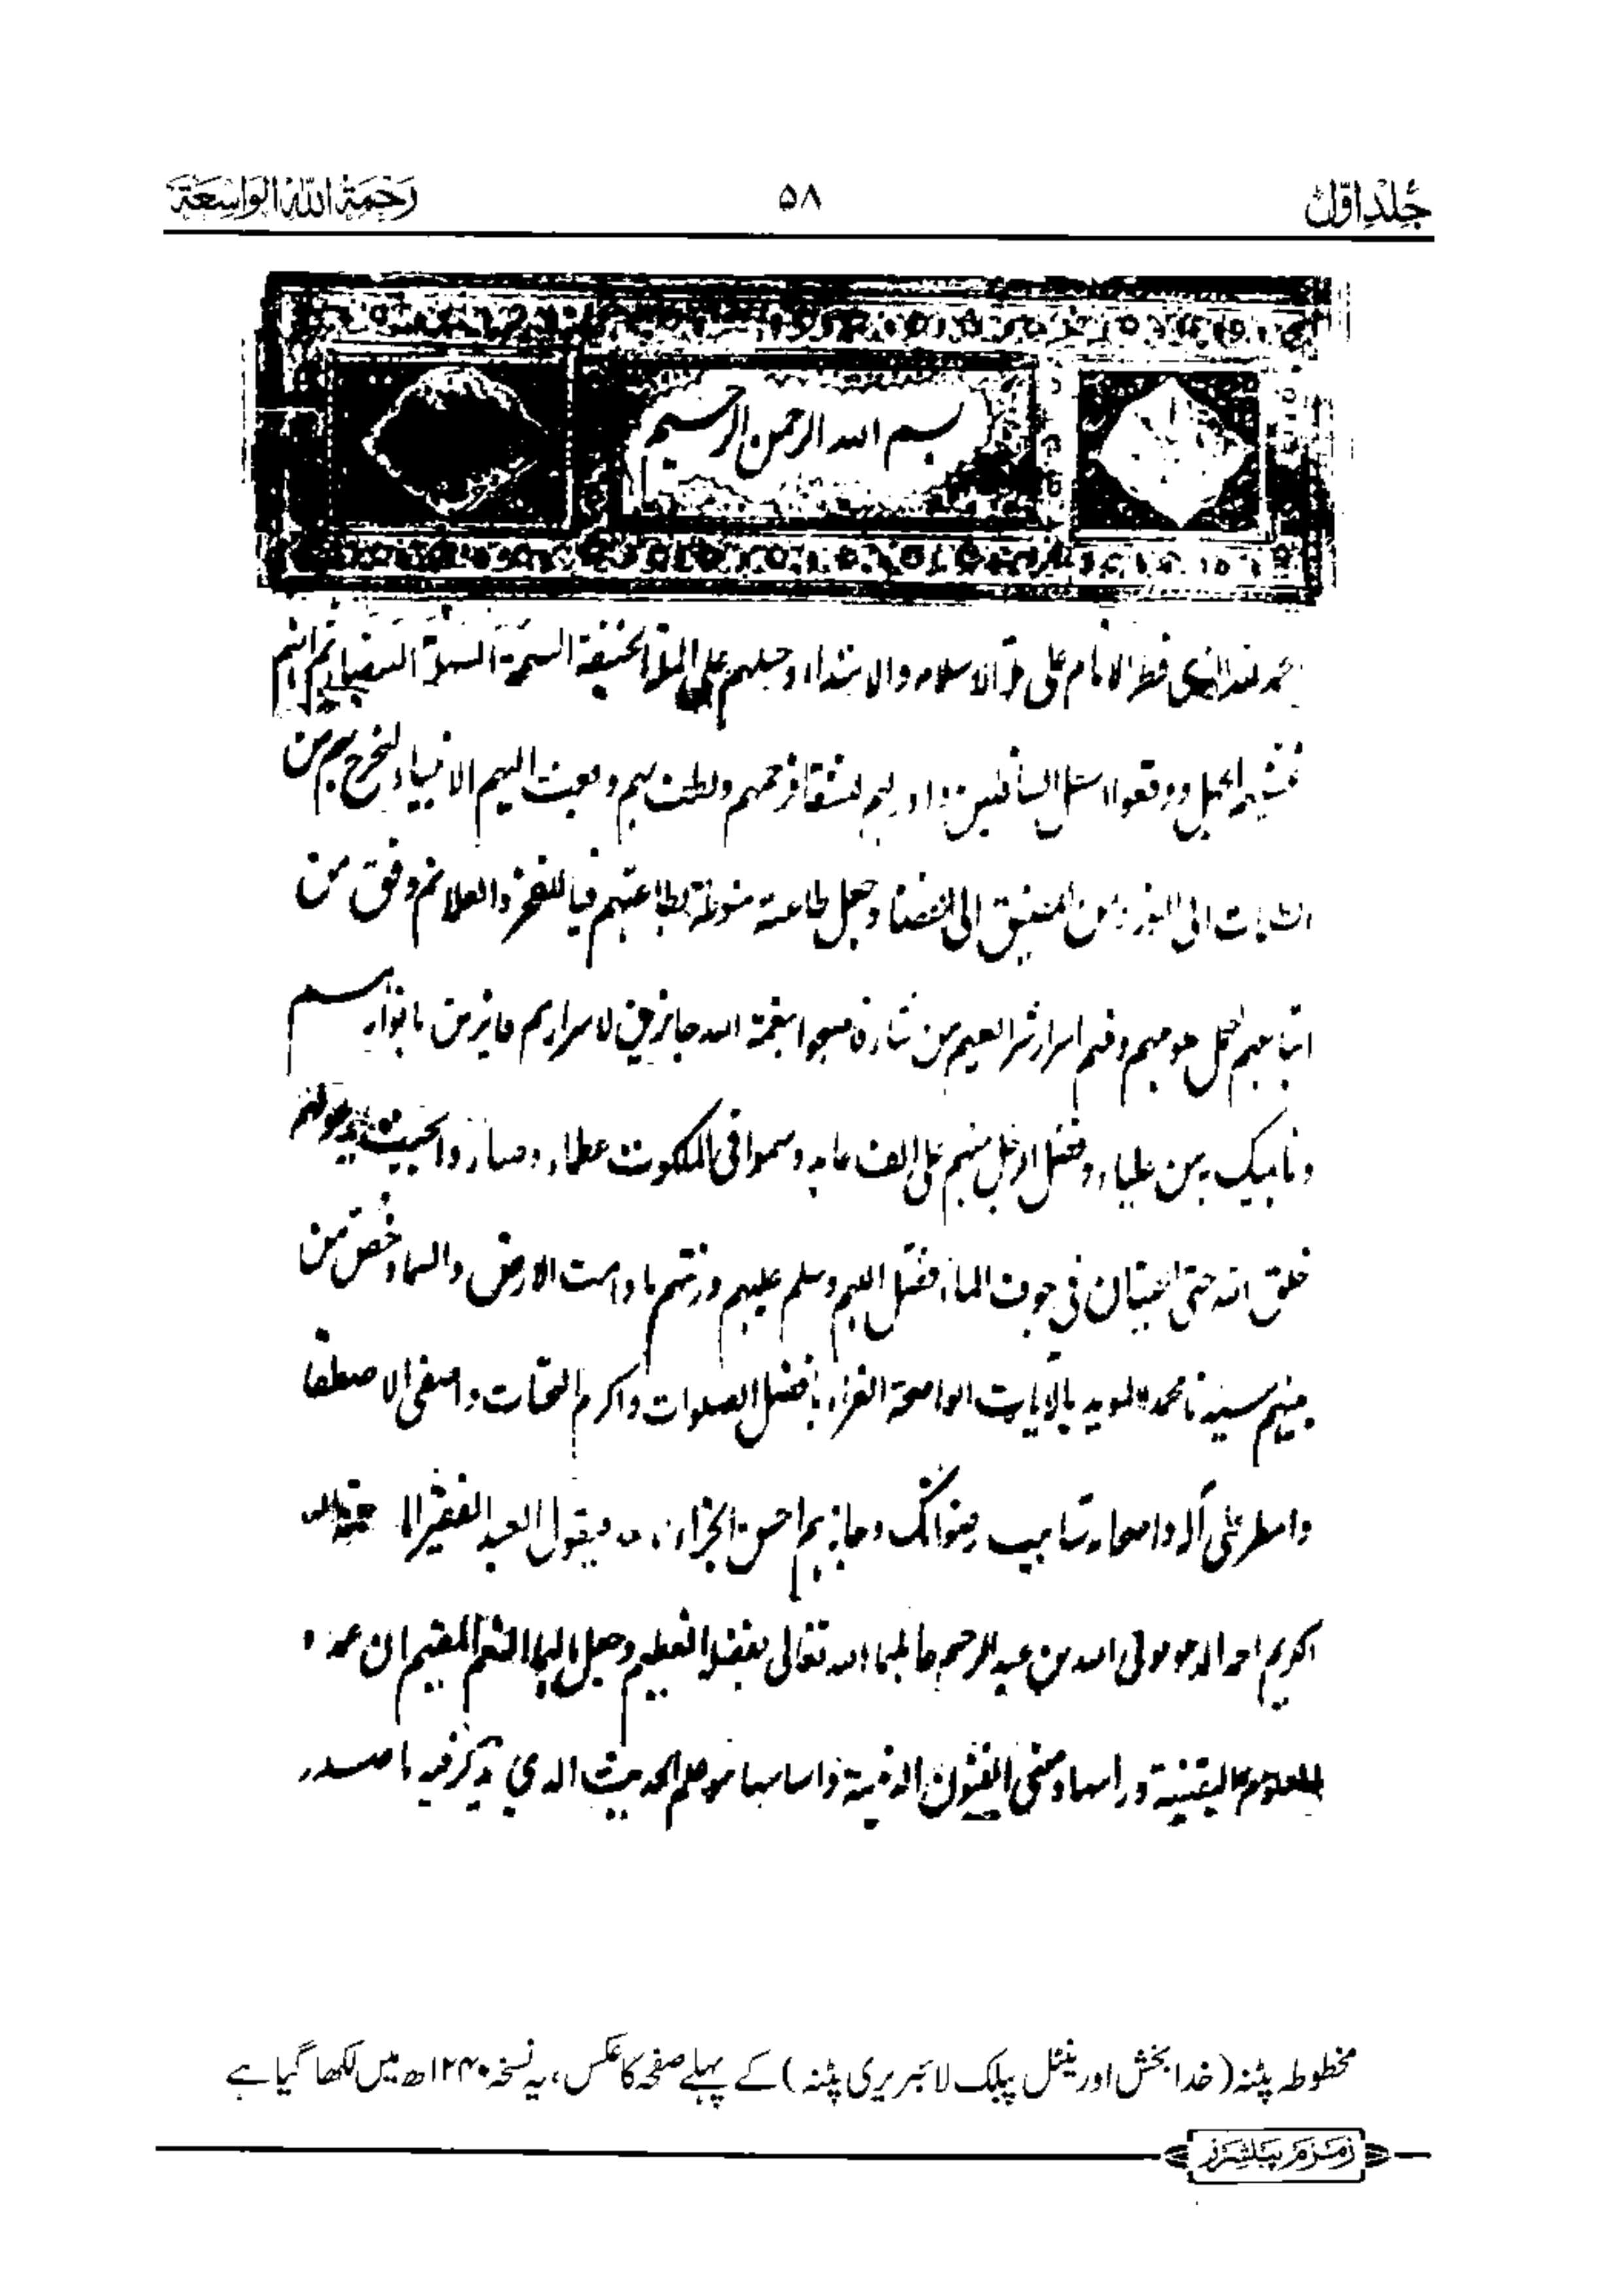 جلد اوّل ۵۸ رحمة الله الواسعة
بسم الله الرحمن الرحيم
فطر الانام على ملة الاسلام والاهتداء وجبلهم على الملة الحنيفية السمحة السهلة البيضاء ثم انهم
غشيهم الجهل ووقعوا اسفل السافلين وادركهم الشقاء فرحمهم ولطف بهم وبعث اليهم الانبياء ليخرج بهم من
الظلمات الى النور ومن المضيق الى الفضاء وجعل طاعته منوطة بطاعتهم فيا للفخر والعلاء ثم وفق من
اتباعهم لحمل علومهم وفهم اسرار شرائعهم من شاء فاصبحوا بنعمة الله حائزين لاسرارهم فايزين بانوارهم
وناهيك به من علياء وفضل الرجل منهم على الف عابد وسموا في الملكوت عظماء وصاروا بحيث يدعو لهم
خلق الله حتى الحيتان في جوف الماء فصل اللهم وسلم عليهم وورثتهم ما دامت الارض والسماء وخص من
بينهم سيدنا محمد المويد بالايات الواضحة الغراء بافضل الصلوات واكرم التحيات واصفى الاصطفا
وامطر على آله واصحابه شآبيب رضوانك وجازهم احسن الجزاء فيقول العبد الفقير الى رحمة الله
الكريم احمد المدعو بولي الله بن عبد الرحيم عاملهما الله تعالى بفضله العظيم وجعل مالهما النعيم المقيم ان عمدة
العلوم اليقينية وراسها ومبنى الفنون الدينية واساسها هو علم الحديث الذي يذكر فيه ما صدر
مخطوطہ پٹنہ (خدا بخش اورینٹل پبلک لائبریری پٹنہ) کے پہلے صفحہ کا عکس، یہ نسخہ ۱۲۴۰ھ میں لکھا گیا ہے
زمزم پبلشرز